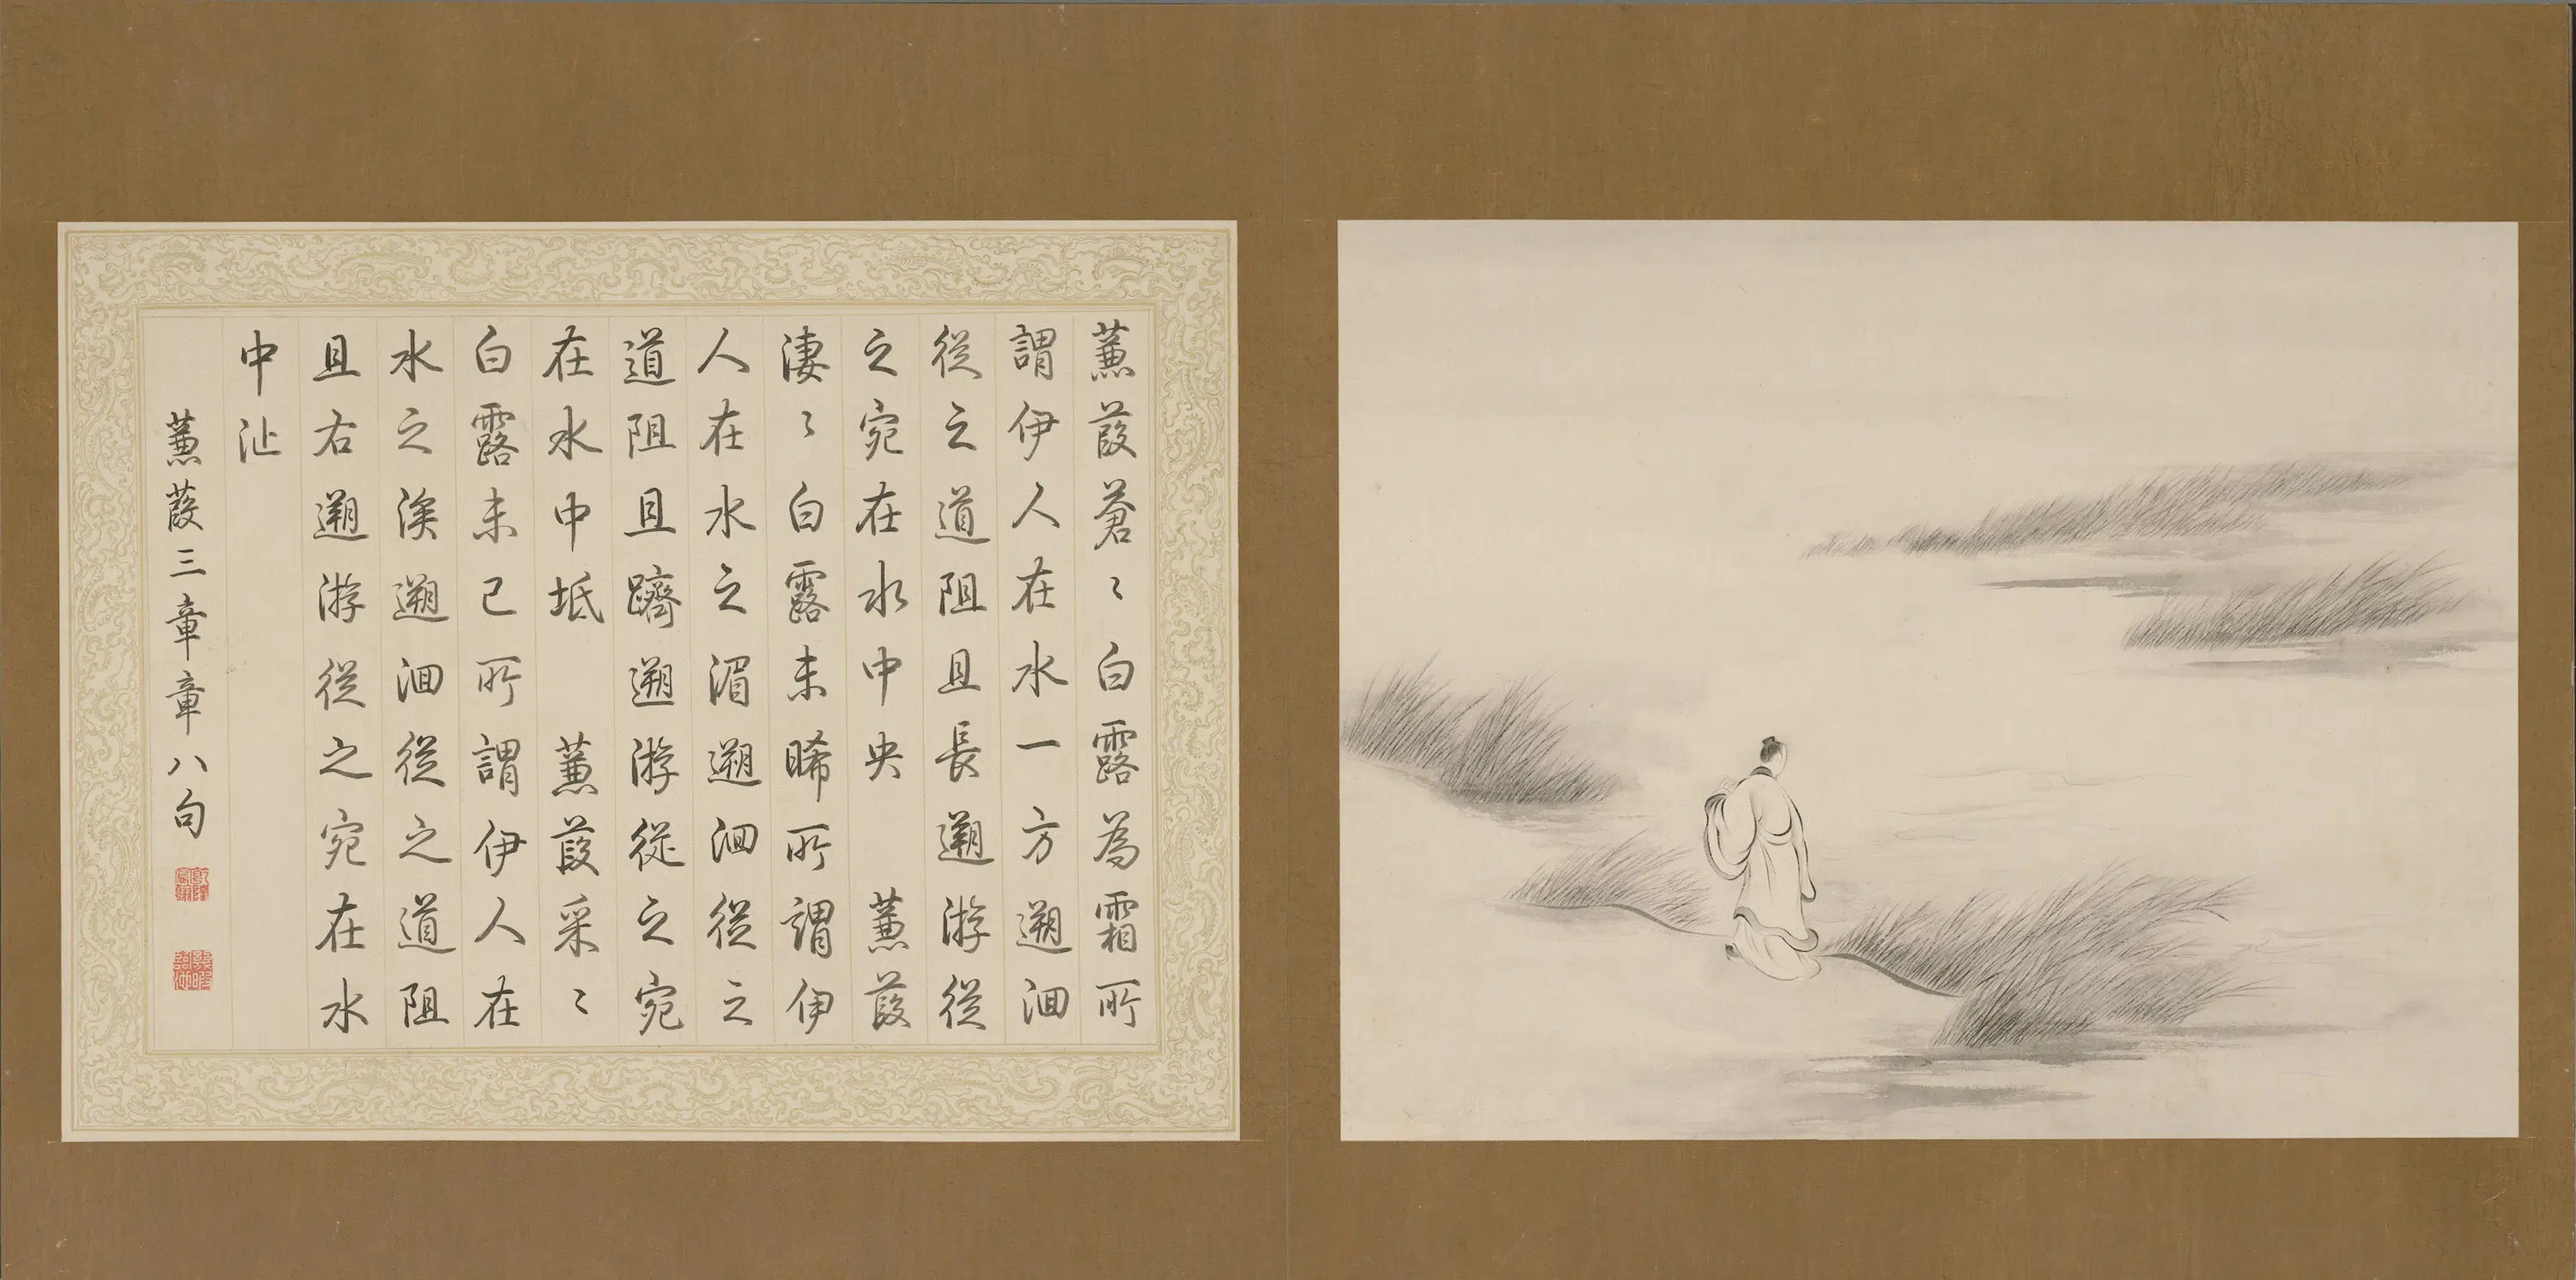 蒹葭蒼〻白露為霜所
謂伊人在水一方遡洄
從之道阻且長遡游從
之宛在水中央 蒹葭
淒〻白露未晞所謂伊
人在水之湄遡洄從之
道阻且躋遡游從之宛
在水中坻 蒹葭采〻
白露未已所謂伊人在
水之涘遡洄從之道阻
且右遡游從之宛在水
中沚
蒹葭三章章八句
乾隆宸翰
幾暇臨池